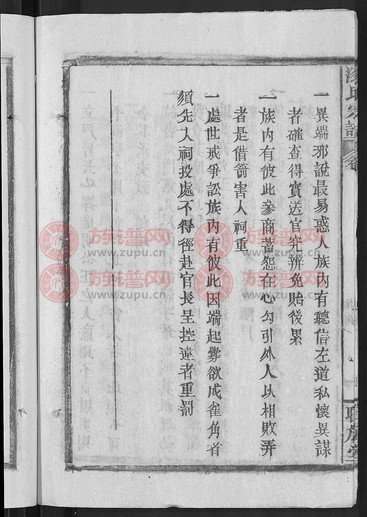 一異端邪說最易惑人族內有聽信左道私懷異謀
者確查得實送官究辨免貽後累
一族內有彼此參商蓄怨在心勾引外人以相欺弄
者是借箭害人祠重
一處世戒爭訟族內有彼此因端起釁欲成雀角者
須先入祠投處不得徑赴官長呈控違者重罰
族譜网
www.zupu.cn